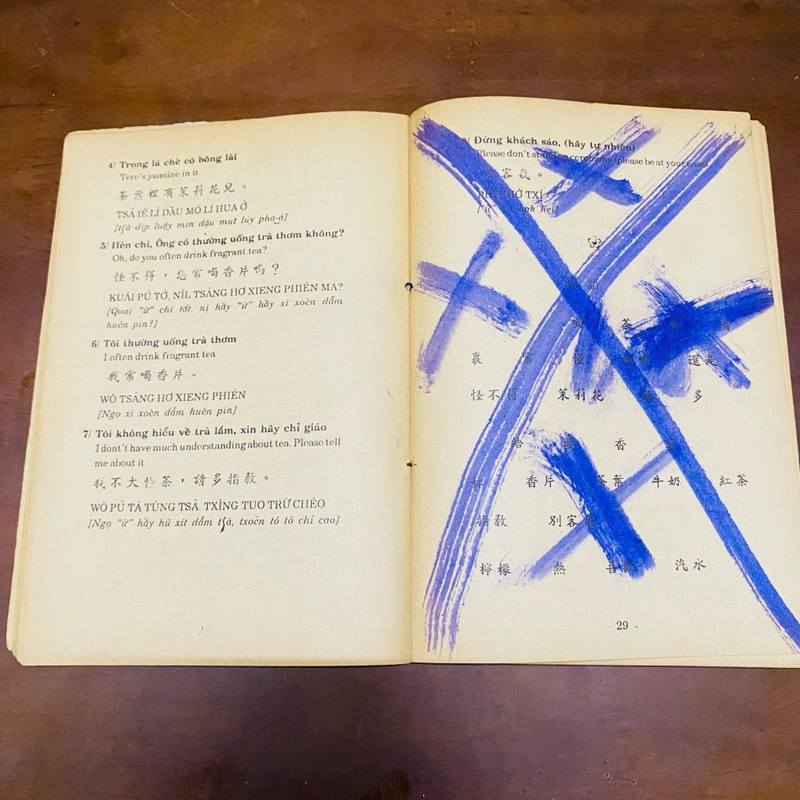 4/ Trong lá chè có bông lài
Tere's jasmine in it.
茶葉裡有茉莉花兒。
TSẢ IÊ LÍ DẦU MÔ LÍ HUA Ở
5/ Hèn chi, Ông có thường uống trà thơm không?
Oh, do you often drink fragrant tea?
怪不得，您常喝香片嗎？
KUÁI PÚ TỞ, NÍL TSẢNG HƠ XIENG PHIÉN MA?
[Quai "ừ" chi tốt, nị hầy "ừ" hầy xì xoèn dắm
huên pin?]
6/ Tôi thường uống trà thơm
I often drink fragrant tea
我常喝香片。
WÒ TSẢNG HƠ XIENG PHIÉN
[Ngọ xì xoèn dắm huên pin]
7/ Tôi không hiểu về trà lắm, xin hãy chỉ giáo
I dont't have much understanding about tea. Please tell
me about it
我不大懂茶，請多指教。
WÒ PÚ TÁ TÙNG TSẢ. TXÌNG TUO TRỪ CHÉO
[Ngọ "ừ" hầy hũ xít dắm tʃà, txoẻn tó tó chỉ cao]
Đừng khách sáo, (hãy tự nhiên)
Please don't ceremony (please be at your
客氣。
KHỚ TXÍ
茶
常
還是
怪不得 茉莉花 多
給 香
香片 茶葉 牛奶 紅茶
指教 別客氣
檸檬 熱 汽水
- 29 -